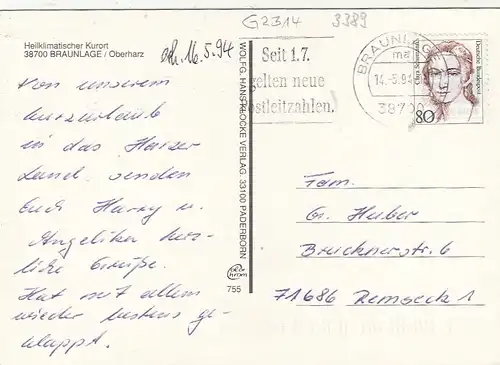 G2314 3389
Heilklimatischer Kurort
38700 BRAUNLAGE / Oberharz
erh. 16.5.94
Von unserem
Kurzurlaub
in das Harzer
Land senden
Euch Harry u.
Angelika herz-
liche Grüße.
Hat mit allem
wieder bestens ge-
klappt.
WOLFG. HANS KLOCKE VERLAG 33100 PADERBORN
755
Seit 1.7.
gelten neue
Postleitzahlen.
BRAUNLAGE
ma
14.-5.94
38700
Clara Schumann
Deutsche Bundespost
80
Fam.
G. Huber
Brucknerstr. 6
71686 Remseck 1